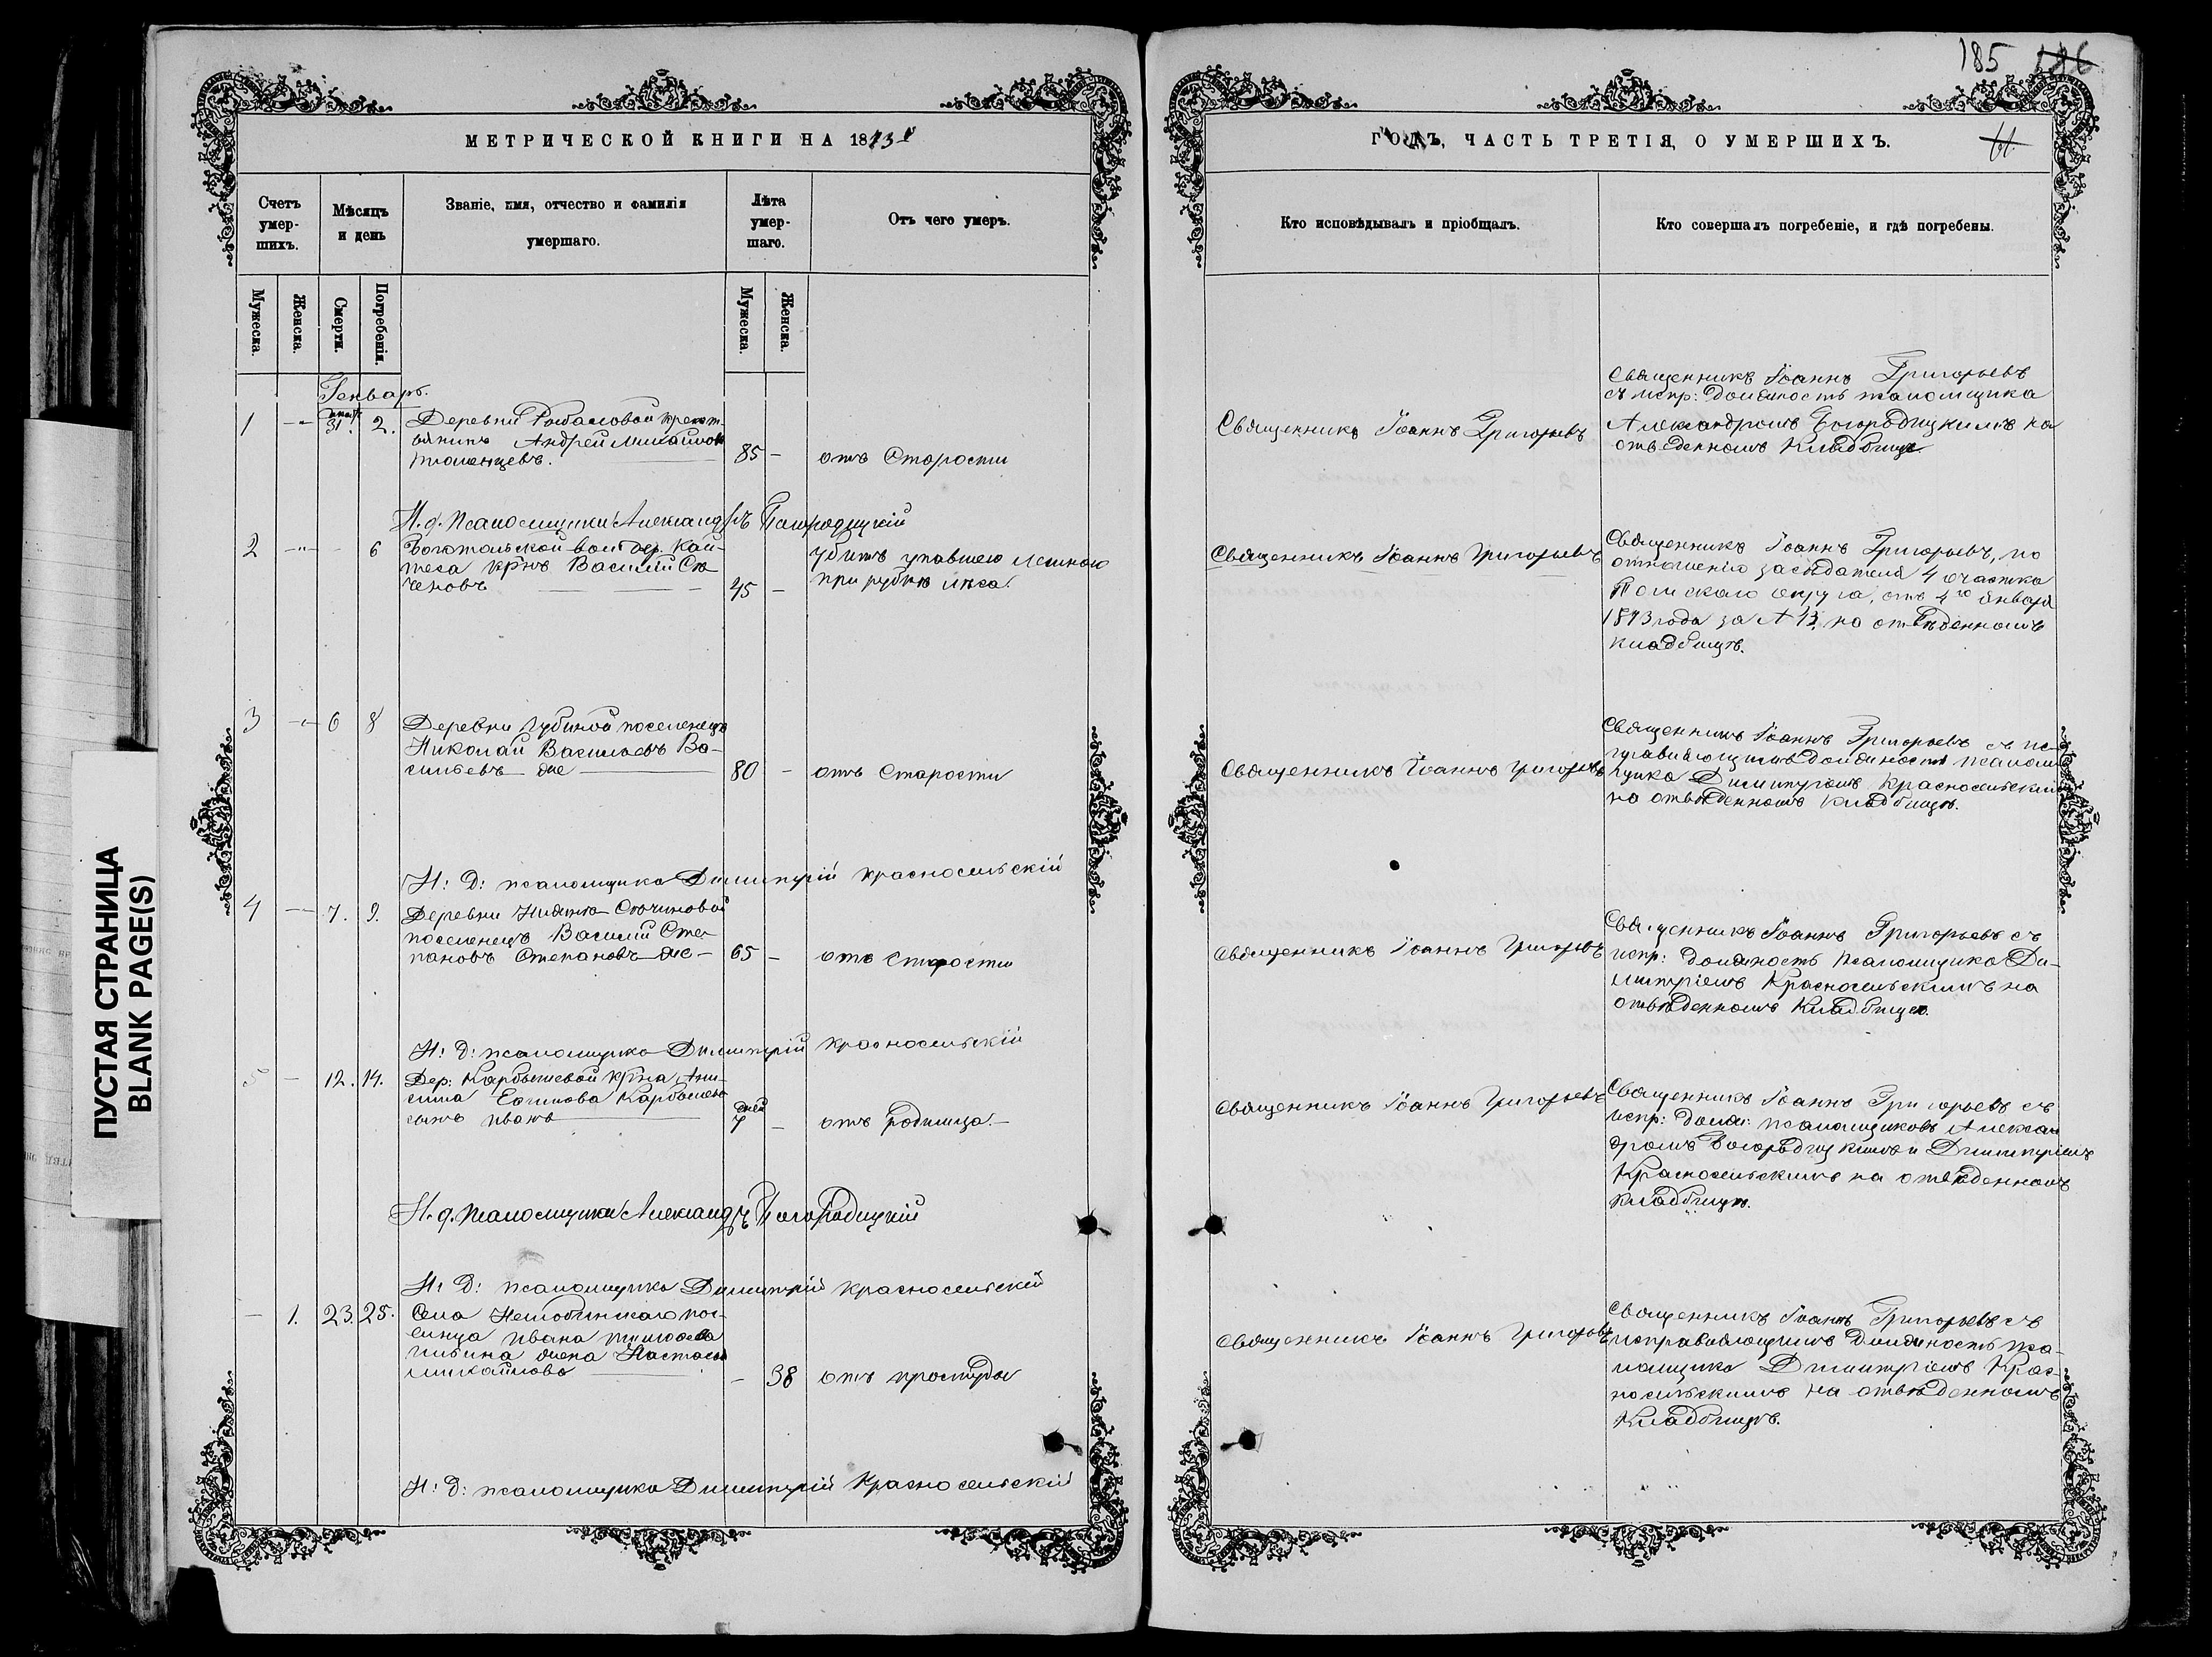 185
ПУСТАЯ СТРАНИЦА
BLANK PAGE(S)
МЕТРИЧЕСКОЙ КНИГИ НА 1873й
Счетъ умер-шихъ.
Мѣсяцъ и день
Званіе, имя, отчество и фамилія умершаго.
Лѣта умер-шаго.
Отъ чего умеръ.
Мужеска.
Женска.
Смерти.
Погребенія.
Мужеска.
Женска.
Генварь.
1 31. 2. Деревни крест-
янинъ Андрей Михайловъ
85 - отъ Старости
И. д. Псаломщика Александръ Богородицкій
2 6
Василій Сю-
чковъ 45 -
Убитъ упавшею лесиною
при рубкѣ лѣса.
3 6 8 Деревни Губиной поселенецъ
Николай Васильевъ Ва-
сильевъ же 80 - отъ Старости
И: Д: псаломщика Димитрій Красносельскій
4 7. 9. Деревни
поселенецъ Василій Сте-
пановъ Степановъ же - 65 - отъ старости
И: Д: псаломщика Димитрій Красносельскій
5 - 12. 14. Дер: Карбышевой крна Ани-
сима Карбышева
сынъ Иванъ дней 7 - отъ родимца. -
И. д. псаломщика Александръ Богородицкій
И: Д: псаломщика Димитрій Красносельскій
- 1. 23. 25. Села Нелюбинскаго пос-
ленца Ивана
жена Настасья
Михайлова - 38 отъ простуды
И: Д: псаломщика Димитрій Красносельскій
ГОДЪ, ЧАСТЬ ТРЕТІЯ, О УМЕРШИХЪ.
Кто исповѣдывалъ и пріобщалъ.
Кто совершалъ погребеніе, и гдѣ погребены.
Священникъ Іоаннъ Григорьевъ
Священникъ Іоаннъ Григорьевъ
съ испр: должность псаломщика
Александромъ Богородицкимъ на
отведенномъ Кладбище.
Священникъ Іоаннъ Григорьевъ
Священникъ Іоаннъ Григорьевъ, по
отношенію засѣдателя 4 участка
Томскаго округа, отъ 4го Января
1873 года за № 13, на отведенномъ
кладбищѣ.
Священникъ Іоаннъ Григорьевъ
Священникъ Іоаннъ Григорьевъ съ ис-
правляющимъ должность псалом-
щика Димитріемъ Красносельскимъ
на отведенномъ кладбищѣ.
Священникъ Іоаннъ Григорьевъ
Священникъ Іоаннъ Григорьевъ съ
испр: должность Псаломщика Ди-
митріемъ Красносельскимъ на
отведенномъ Кладбищѣ.
Священникъ Іоаннъ Григорьевъ
Священникъ Іоаннъ Григорьевъ съ
испр: долж: псаломщиковъ Алексан-
дромъ Богородицкимъ и Димитріемъ
Красносельскимъ на отведенномъ
кладбищѣ.
Священникъ Іоаннъ Григорьевъ
Священникъ Іоаннъ Григорьевъ съ
исправляющимъ должность пса-
ломщика Димитріемъ Крас-
носельскимъ на отведенномъ
Кладбищѣ.